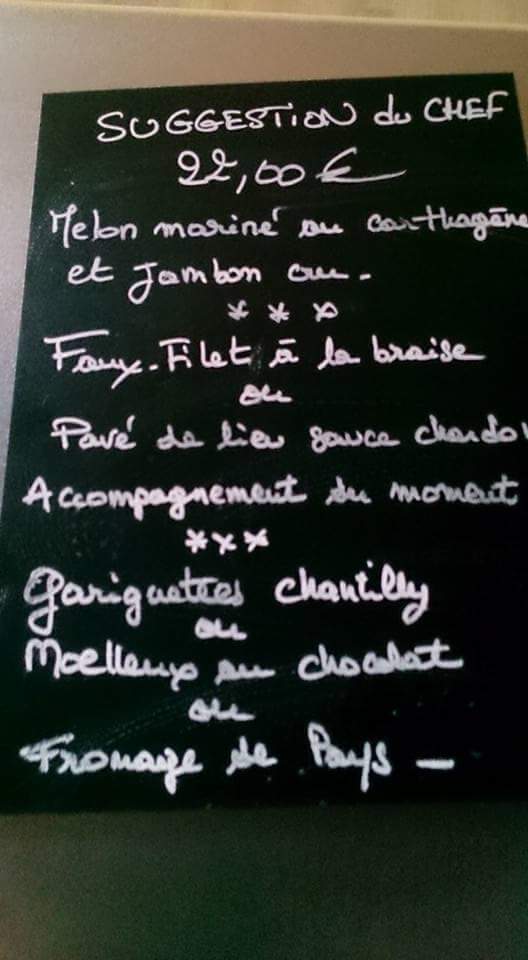 SUGGESTION du CHEF
22,00 €
Melon mariné au carthagène
et Jambon cru -
* * *
Faux-Filet à la braise
ou
Pavé de lieu sauce chardo
Accompagnement du moment
***
Gariguettes chantilly
ou
Moelleux au chocolat
ou
Fromage de Pays -